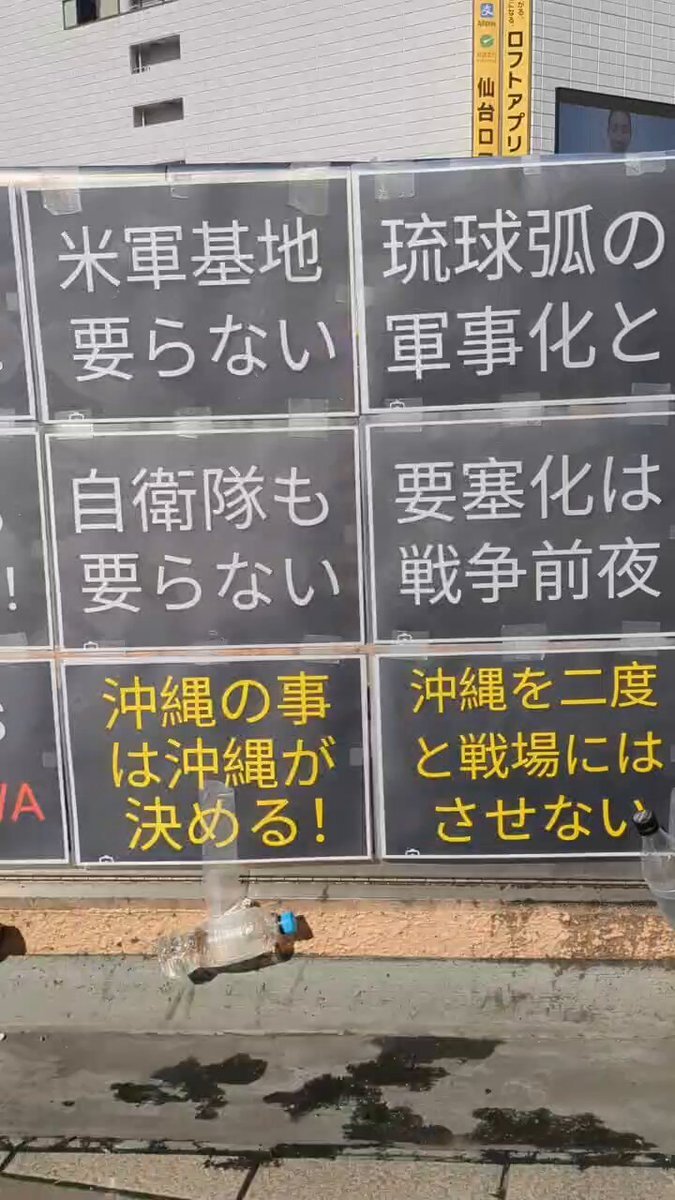 ロフトアプリ
仙台ロ
米軍基地
要らない
琉球弧の
軍事化と
自衛隊も
要らない
要塞化は
戦争前夜
!
沖縄の事
は沖縄が
決める!
沖縄を二度
と戦場には
させない
S
WA